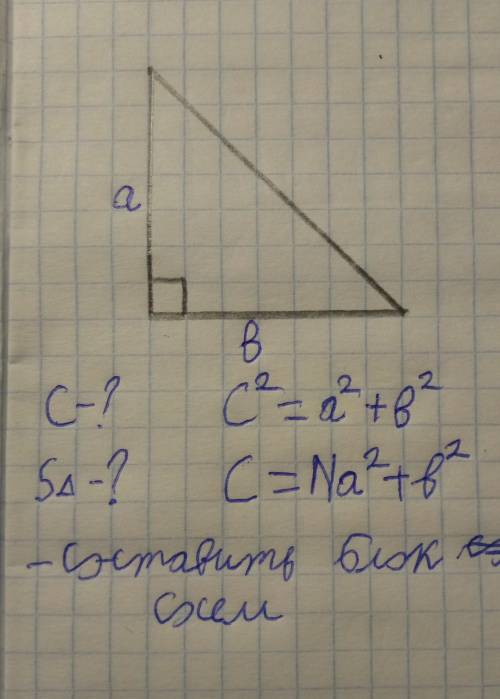 a
в
C-?
C²=a²+в²
S△-?
C=Na²+в²
-составить блок
схем